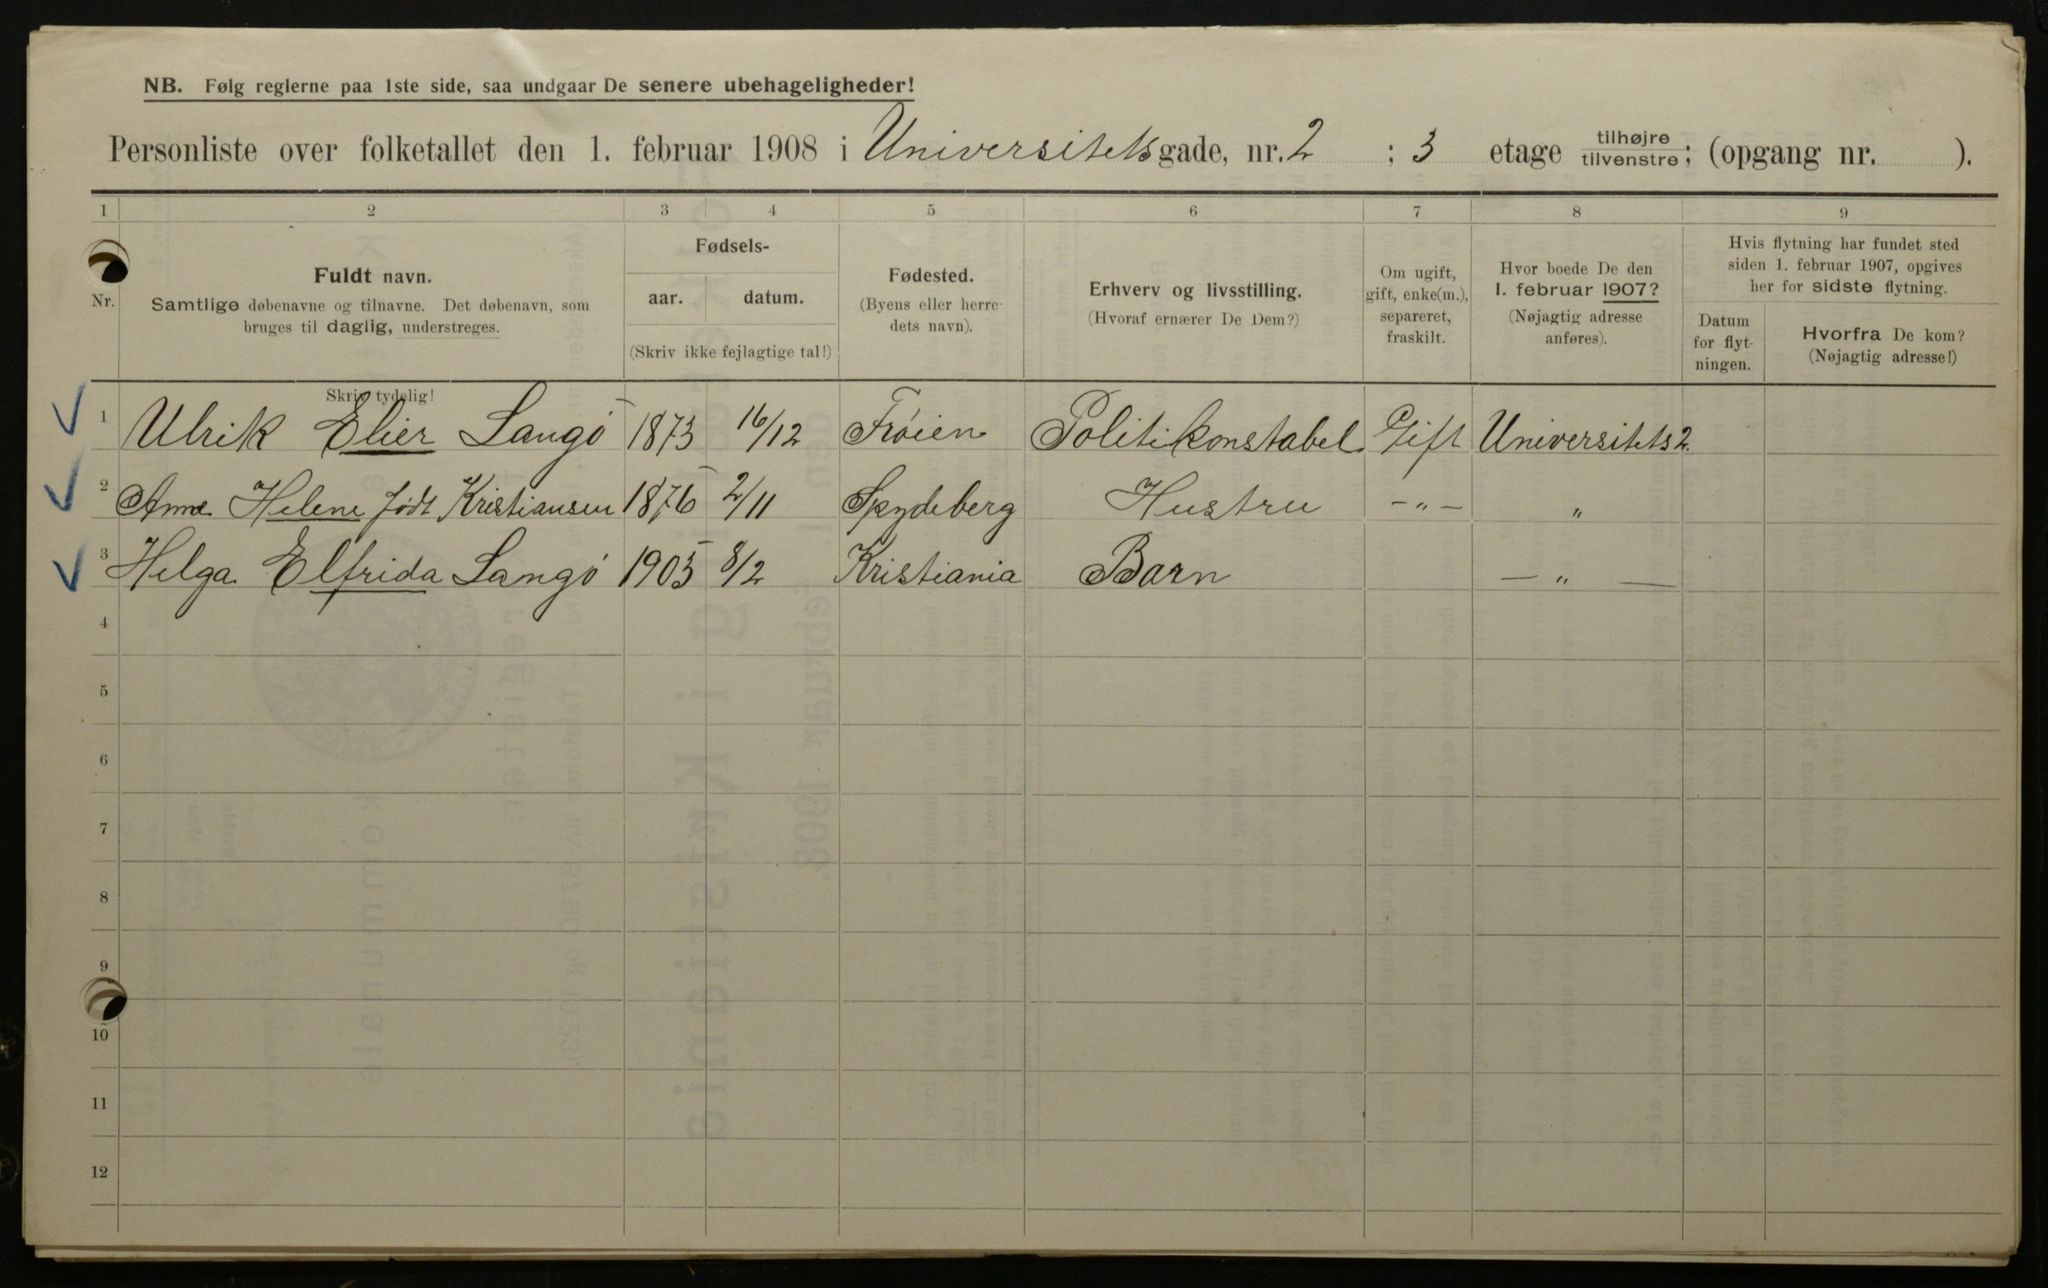 NB. Følg reglerne paa 1ste side, saa undgaar De senere ubehageligheder!
Personliste over folketallet den 1. februar 1908 i Universitetsgade, nr. 2 ; 3 etage tilhøjre tilvenstre; (opgang nr. ).
1 2 3 4 5 6 7 8 9
Nr.
Fuldt navn.
Samtlige døbenavne og tilnavne. Det døbenavn, som
bruges til daglig, understreges.
Skriv tydelig!
Fødsels-
aar. datum.
(Skriv ikke fejlagtige tal!)
Fødested.
(Byens eller herre-
dets navn).
Erhverv og livsstilling.
(Hvoraf ernærer De Dem?)
Om ugift,
gift, enke(m.),
separeret,
fraskilt.
Hvor boede De den
1. februar 1907?
(Nøjagtig adresse
anføres).
Hvis flytning har fundet sted
siden 1. februar 1907, opgives
her for sidste flytning.
Datum
for flyt-
ningen.
Hvorfra De kom?
(Nøjagtig adresse!)
1 Ulrik Elier Langö 1873 16/12 Frøien Politikonstabel Gift Universitets 2.
2 Anne Helene født Kristiansen 1876 2/11 Spydeberg Hustru -"- "
3 Helga Elfrida Langö 1905 8/2 Kristiania Barn — " —
4
5
6
7
8
9
10
11
12